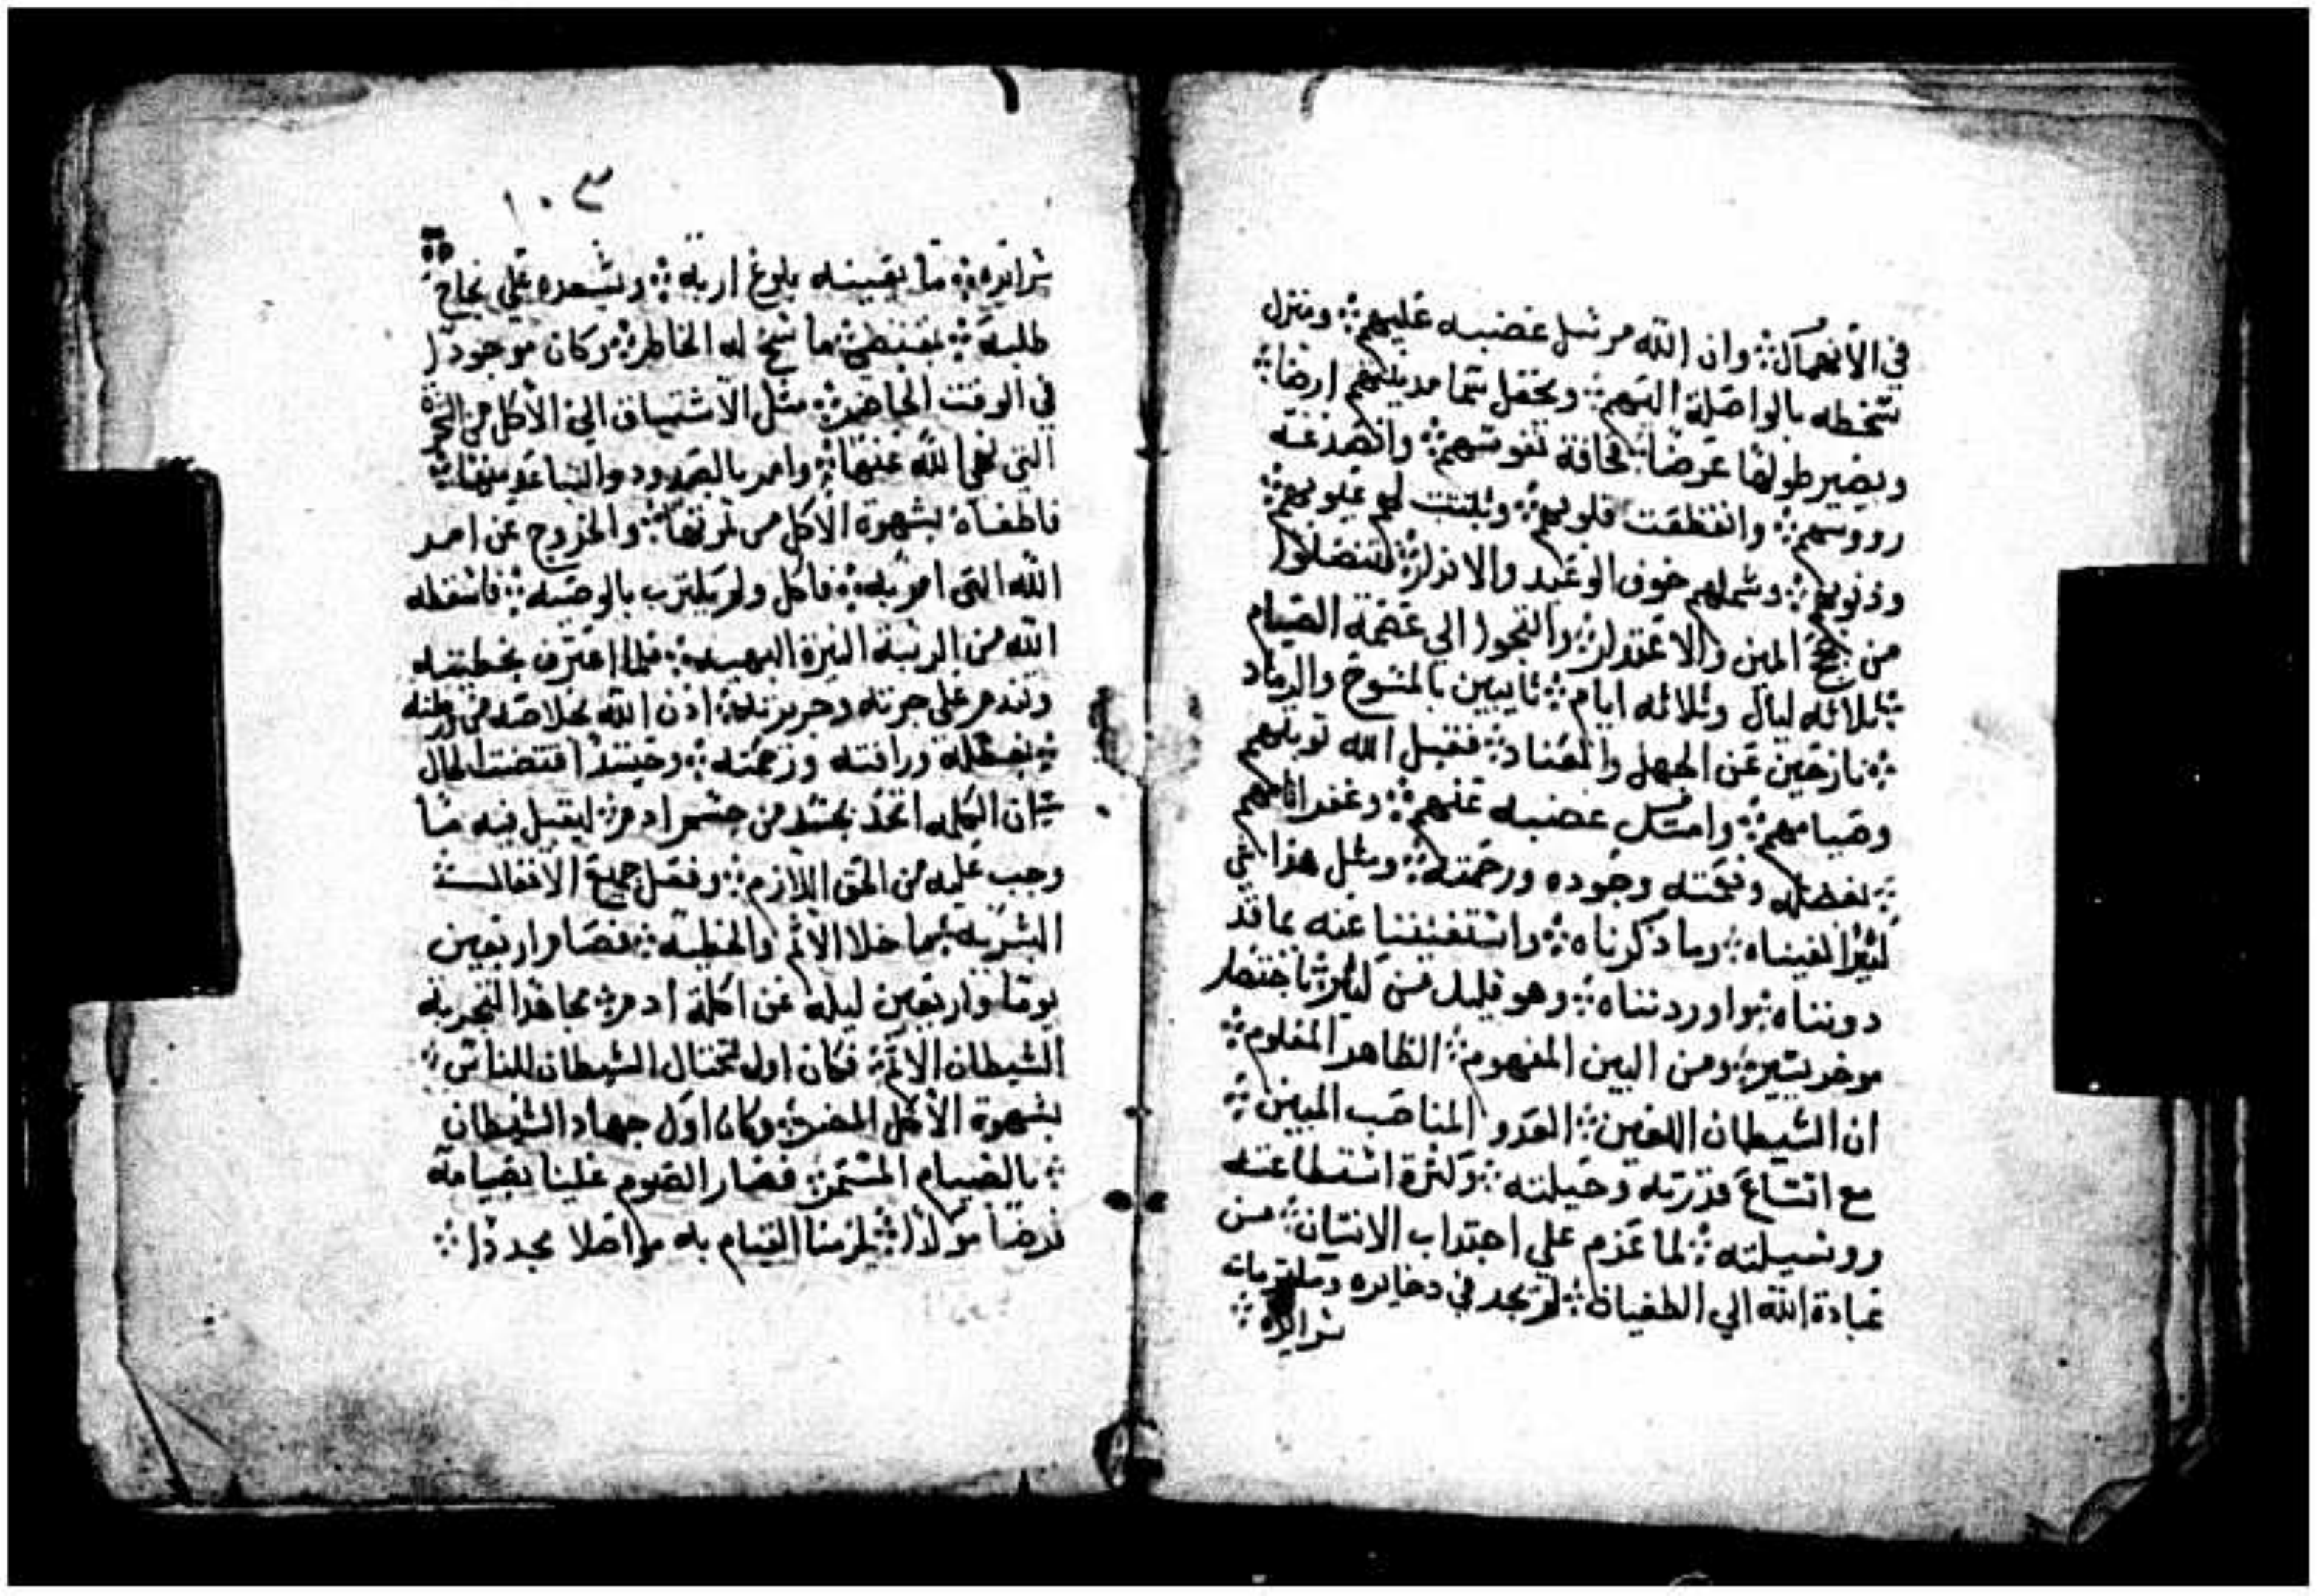 في الانهمال ۞ وان الله مرسل غضبه عليهم ۞ ومنزل
سخطه بالواصلة اليهم ۞ ويجعل سما مدينتهم ارضا ۞
ويصير طولها عرضا ۞ نفوسهم ۞
رووسهم ۞ قلوبهم ۞ لهم عيوبهم ۞
وذنوبهم ۞ وشملهم خوف الوعيد والانذار ۞
من المين والاعتذار ۞ والتجوا الي عصمة الصيام
۞ ثلاثه ليال وثلاثه ايام ۞ تايبين بالمسوخ والرماد
۞ نازحين عن الجهل والعناد ۞ فقبل الله توبتهم
وصيامهم ۞ غضبه عنهم ۞ وغفر اثامهم
۞ بفضله ونعمته وجوده ورحمته ۞ ومثل هذا
كثيرا الغيناه ۞ وما ذكرناه ۞ واستغنينا عنه بما قد
دوناه ۞ واوردناه ۞ وهو قليل من كثير ۞ باختصار
موخر يسير ۞ ومن البين المفهوم ۞ الظاهر المعلوم ۞
ان الشيطان اللعين ۞ العدو المناصب المبين ۞
مع اتساع قدرته وحيلته ۞ وكثرة استطاعته
ووسيلته ۞ لما عزم علي اجتداب الانسان ۞ من
عبادة الله الي الطغيان ۞ لم يجد في دخايره
سرايره ۞
١٠٣
سرايره ۞ ما يعينه بلوغ اربه ۞ ويسعده علي نجاح
طلبه ۞ ما سنح له الخاطر ۞ وكان موجودا
في الوقت الحاضر ۞ مثل الاشتياق الي الاكل من الشجرة
التي نهي الله عنها ۞ وامر بالصدود والتباعد منها ۞
فاطغاه بشهوة الاكل من ثمرتها ۞ والخروج عن امر
الله التي امر به ۞ فاكل ولم بالوصيه ۞ فاسقطه
الله من الرتبة النيرة البهيه ۞ فلما اعترف بخطيته
وندم علي جرته وجريرته ۞ اذن الله بخلاصه من
۞ بفضله ورافته ورحمته ۞ وحينئذ اقتضت الحال
۞ ان الكلمه اتخذ بجسد من جسم ادم ۞ ليقبل فيه ما
وجب عليه من الحق اللازم ۞ وفعل جميع الافعال
البشريه ۞ ما خلا الاثم والخطيه ۞ فصام اربعين
يوما واربعين ليله عن اكلة ادم ۞ مجاهدا لتجربة
الشيطان الاثم ۞ فكان اول الشيطان للناس ۞
بشهوة الاكل المضر ۞ وكان اول جهاد الشيطان
۞ بالصيام المستمر ۞ فصار الصوم علينا بصيامه
فرضا موكدا ۞ يلزمنا القيام به مواصلا مجددا ۞